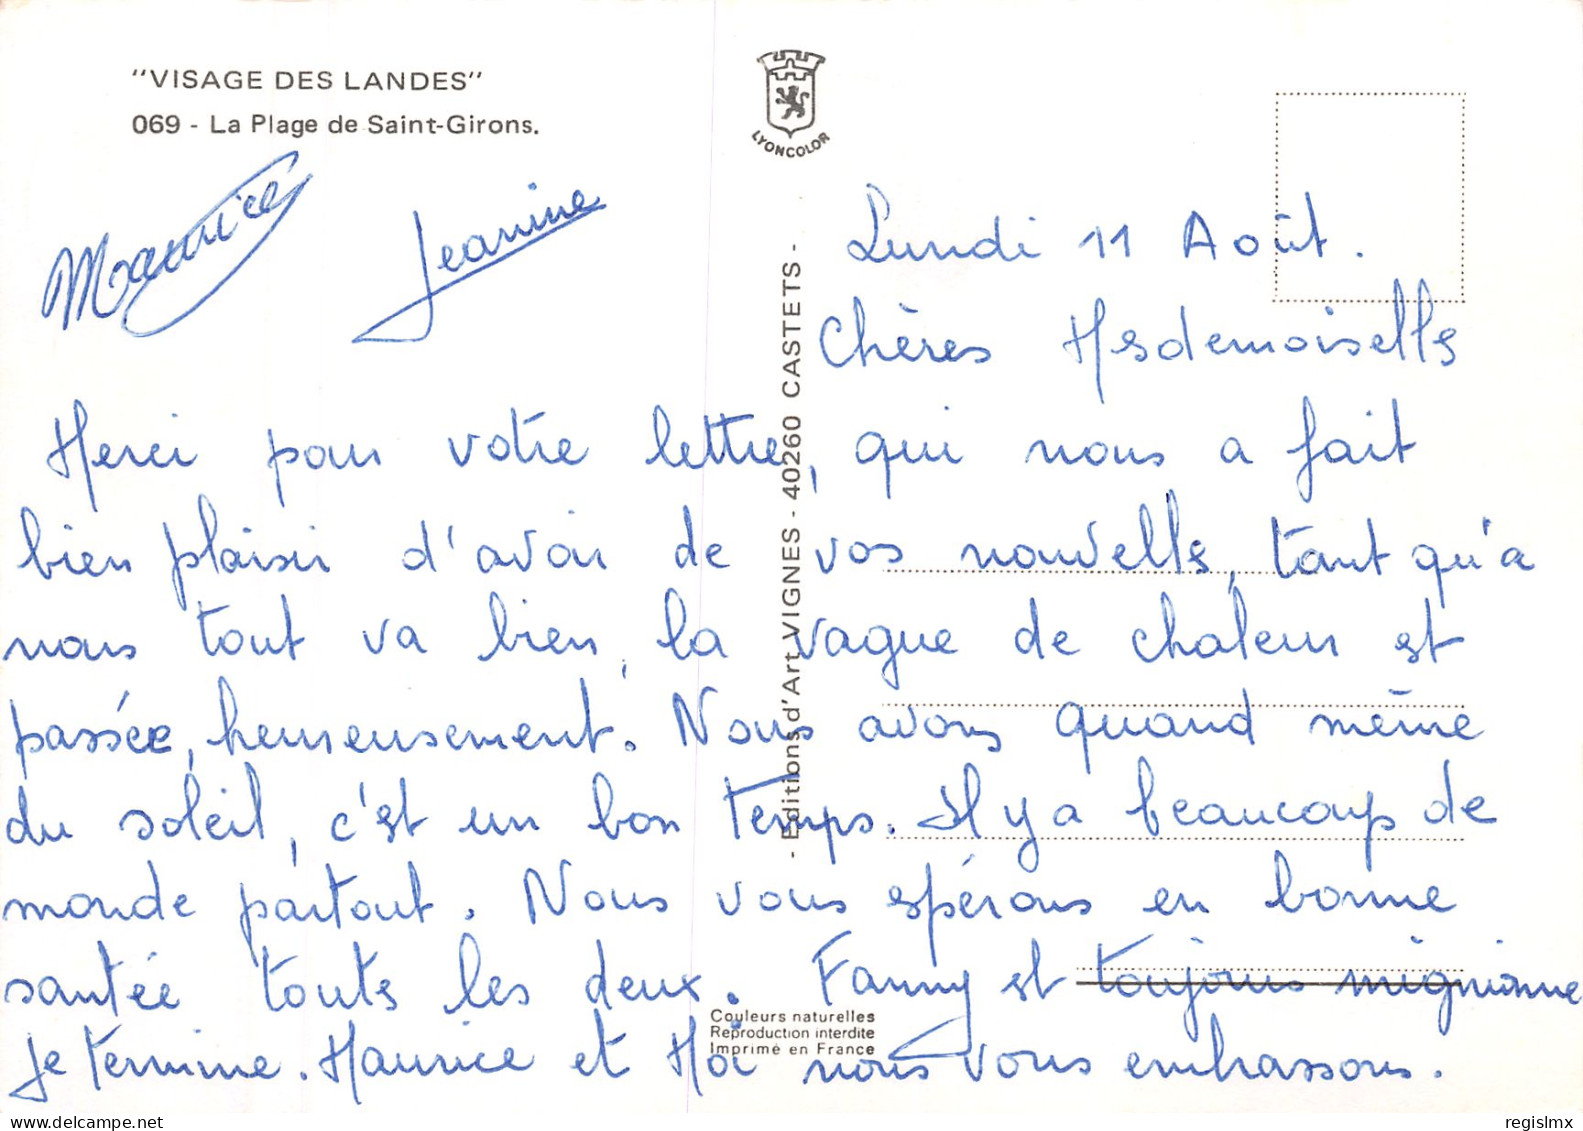 "VISAGE DES LANDES"
069 - La Plage de Saint-Girons.
LYONCOLOR
Maurice
Jeanine
- Editions d'Art VIGNES - 40260 CASTETS -
Lundi 11 Août.
Chères Mesdemoiselles
Merci pour votre lettre, qui nous a fait
bien plaisir d'avoir de vos nouvelles, tant qu'à
nous tout va bien, la vague de chaleur est
passée, heureusement. Nous avons quand même
du soleil, c'est un bon temps. Il y a beaucoup de
monde partout. Nous vous espérons en bonne
santée toutes les deux. Fanny est toujours mignionne
je termine. Maurice et Moi nous vous embrassons.
Couleurs naturelles
Reproduction interdite
Imprimé en France
delcampe.net
regislmx